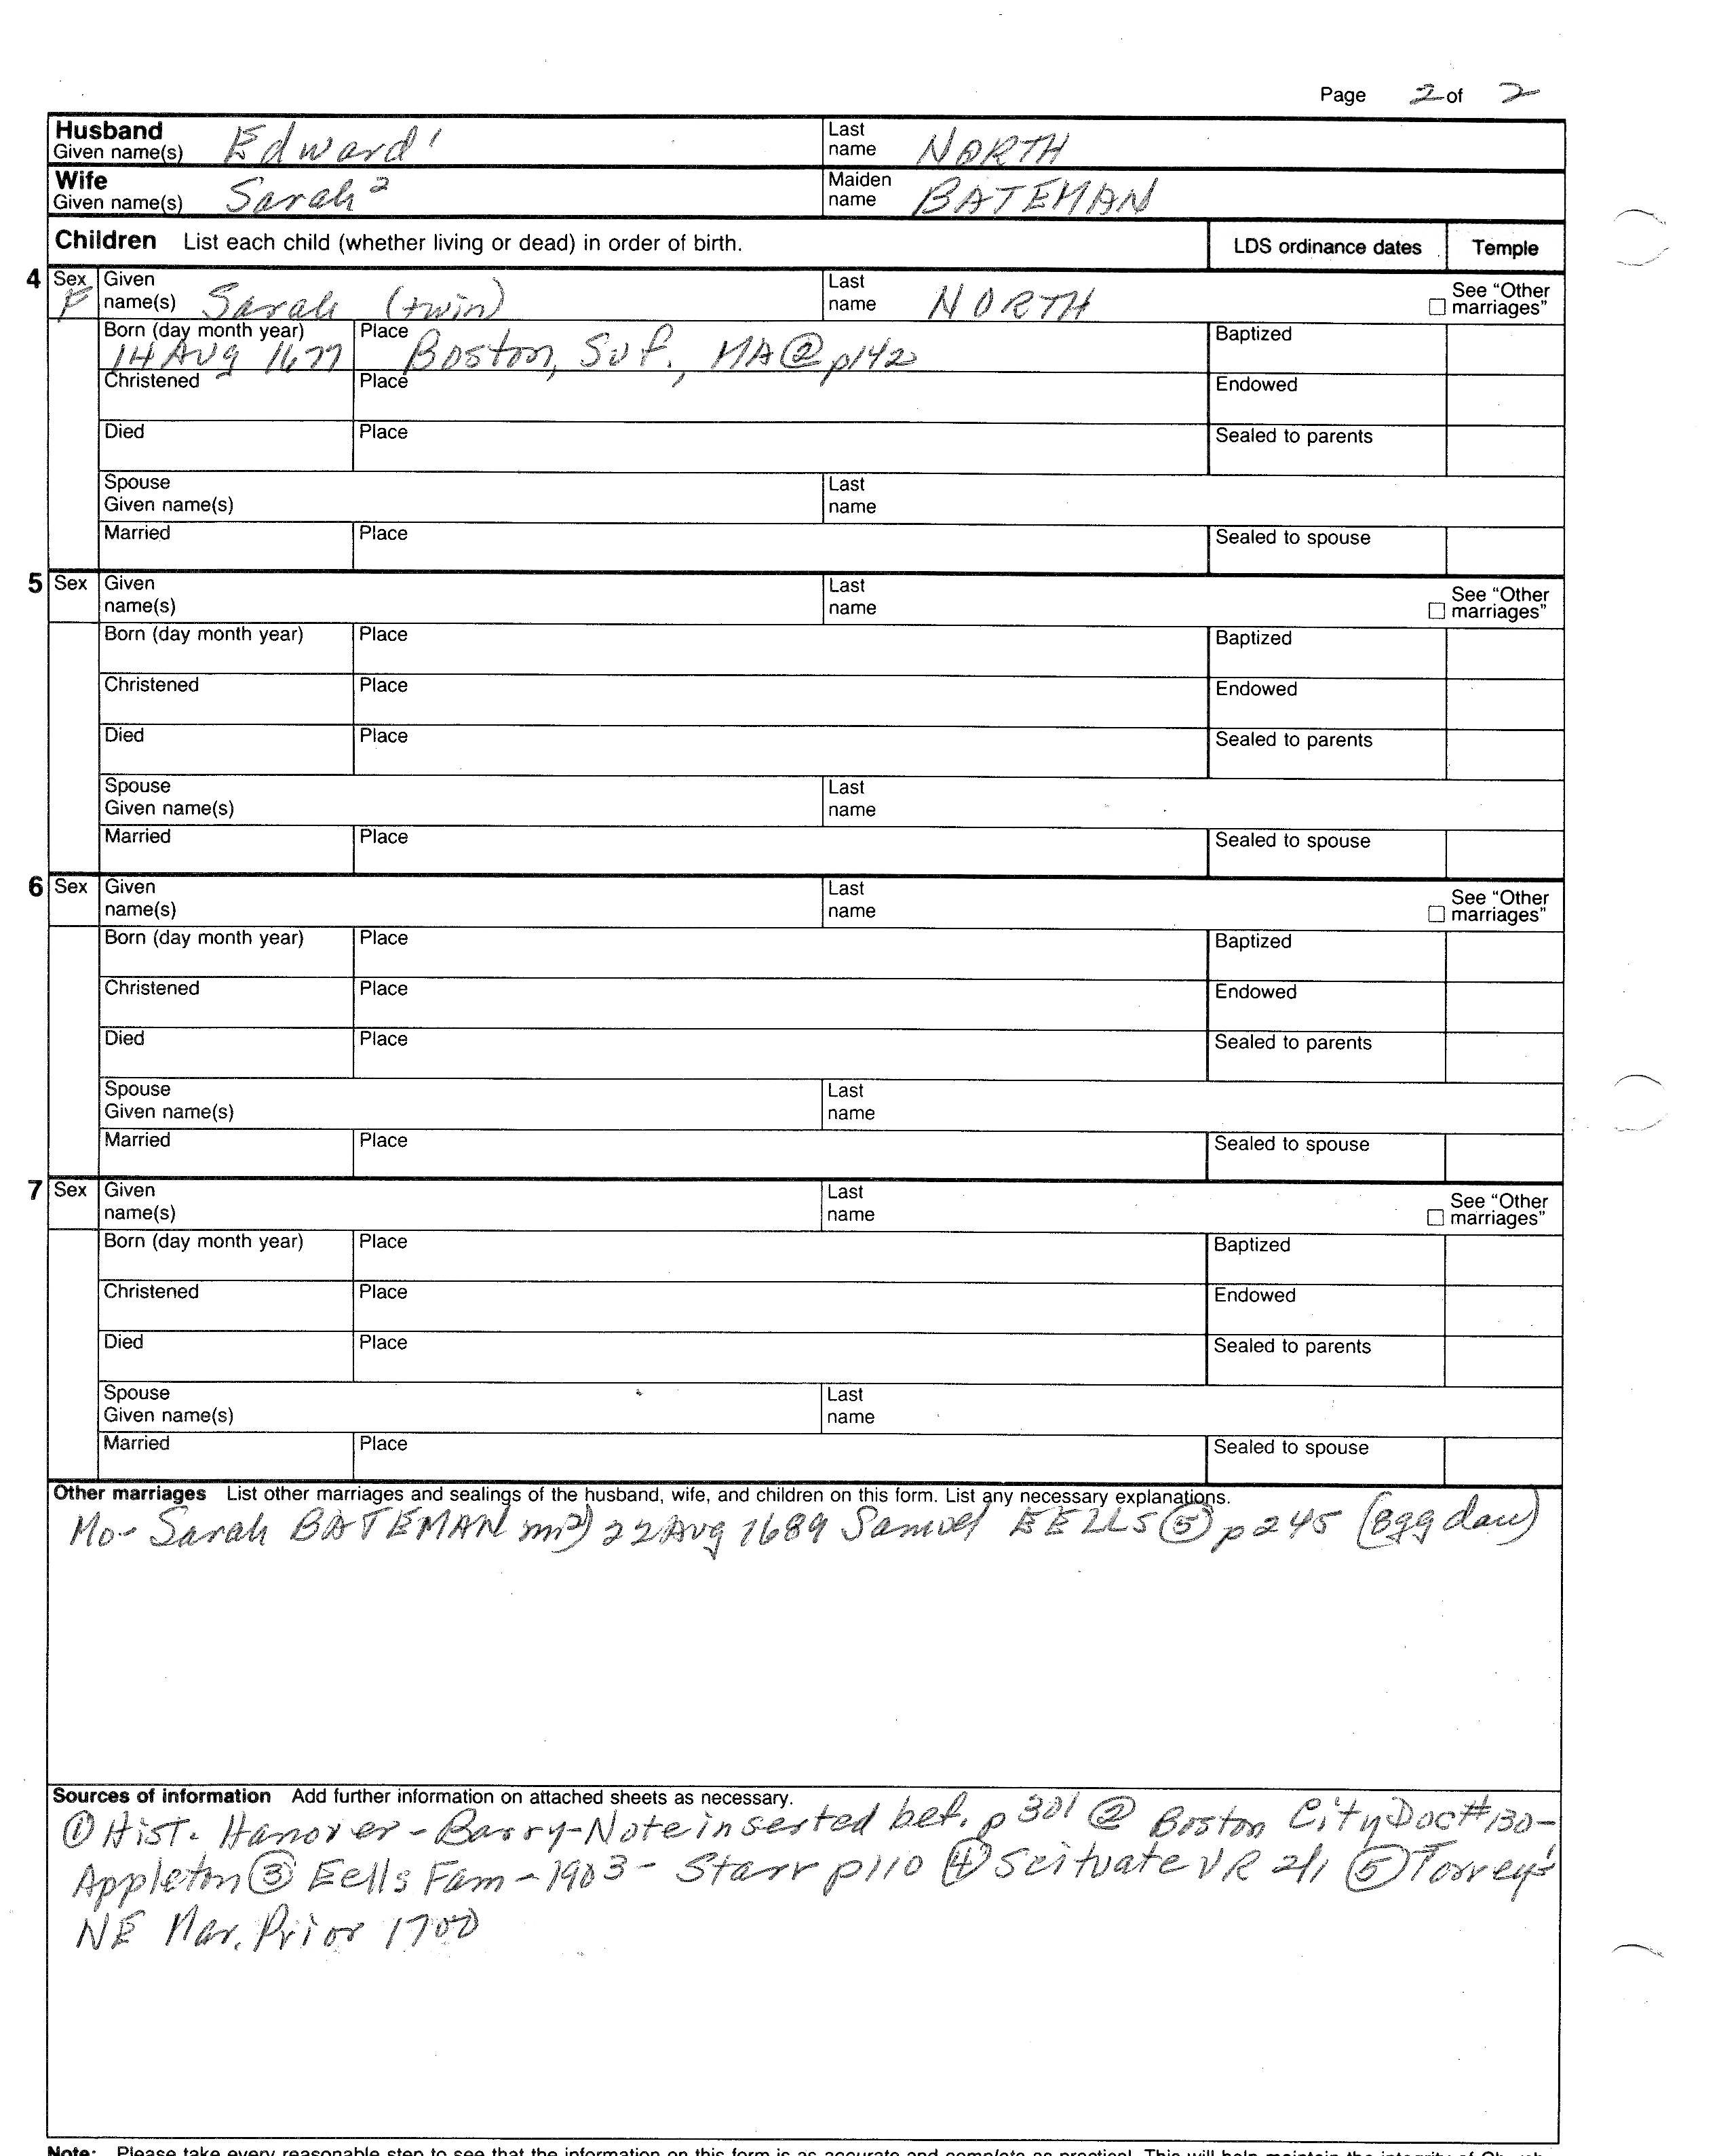 Page 2 of 2
Husband Given name(s) Edward¹ Last name NORTH
Wife Given name(s) Sarah² Maiden name BATEMAN
Children List each child (whether living or dead) in order of birth. LDS ordinance dates Temple
4 Sex F Given name(s) Sarah (twin) Last name NORTH ☐ See "Other marriages"
Born (day month year) 14 AUG 1677 Place Boston, Suf., MA ② p142 Baptized
Christened Place Endowed
Died Place Sealed to parents
Spouse Given name(s) Last name
Married Place Sealed to spouse
5 Sex Given name(s) Last name ☐ See "Other marriages"
Born (day month year) Place Baptized
Christened Place Endowed
Died Place Sealed to parents
Spouse Given name(s) Last name
Married Place Sealed to spouse
6 Sex Given name(s) Last name ☐ See "Other marriages"
Born (day month year) Place Baptized
Christened Place Endowed
Died Place Sealed to parents
Spouse Given name(s) Last name
Married Place Sealed to spouse
7 Sex Given name(s) Last name ☐ See "Other marriages"
Born (day month year) Place Baptized
Christened Place Endowed
Died Place Sealed to parents
Spouse Given name(s) Last name
Married Place Sealed to spouse
Other marriages List other marriages and sealings of the husband, wife, and children on this form. List any necessary explanations.
Mo- Sarah BATEMAN m2) 22 Aug 1689 Samuel EELLS ⑤ p245
Sources of information Add further information on attached sheets as necessary.
① Hist. Hanover - Barry - Note inserted bef. p 301 ② Boston City Doc # 130-
Appleton ③ Eells Fam - 1903 - Starr p110 ④ Scituate VR 2/1 ⑤ Torrey's
NE Mar. Prior 1700
Note: Please take every reasonable step to see that the information on this form is as accurate and complete as practical. This will help maintain the integrity of Church